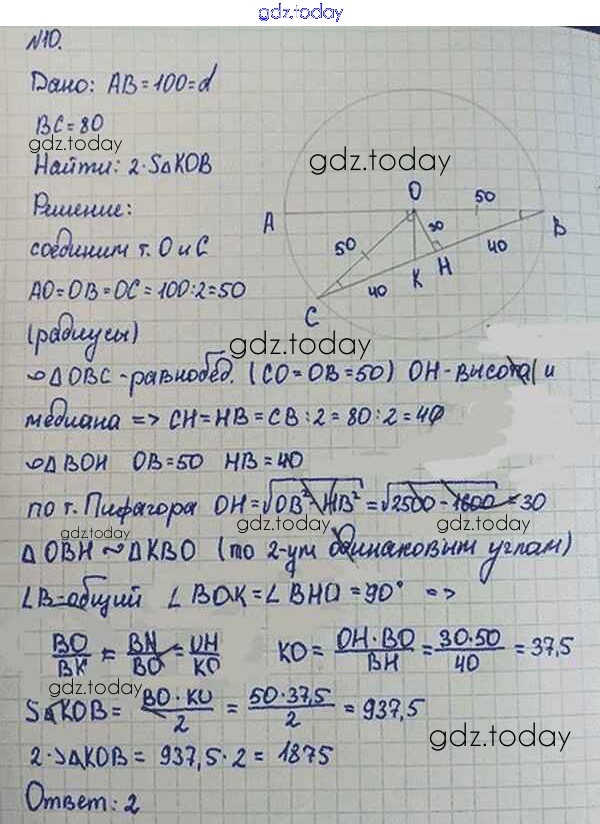 gdz.today
N10.
Дано: AB=100=d
BC=80
gdz.today
Найти: 2·S△KOB
gdz.today
Решение:
соединим т. О и С
AO=OB=OC=100:2=50
(радиусы)
gdz.today
O
50
A
B
50
30
40
K
H
40
C
△OBC-равнобед. (CO=OB=50) OH-высота и
медиана => CH=HB=CB:2=80:2=40
△BOH OB=50 HB=40
по т. Пифагора OH=√OB²-HB²=√2500-1600=30
gdz.today
gdz.today
△OBH~△KBO (по 2-ум одинаковым углам)
∠B-общий ∠BOK=∠BHO=90° =>
gdz.today
BO/BK=BH/BO=OH/KO KO=OH·BO/BH=30·50/40=37,5
gdz.today
S△KOB=BO·KO/2=50·37,5/2=937,5
gdz.today
2·S△KOB=937,5·2=1875
gdz.today
Ответ: 2